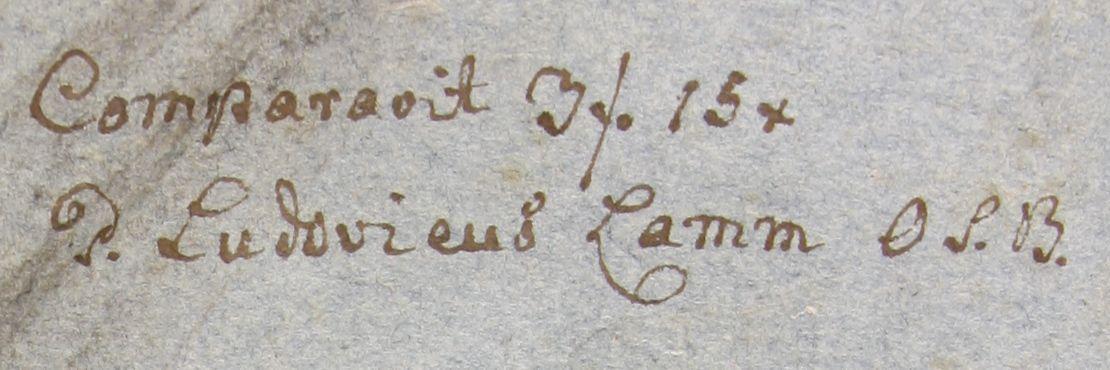 Comparavit 3f. 15x
P. Ludovicus Lamm O S. B.